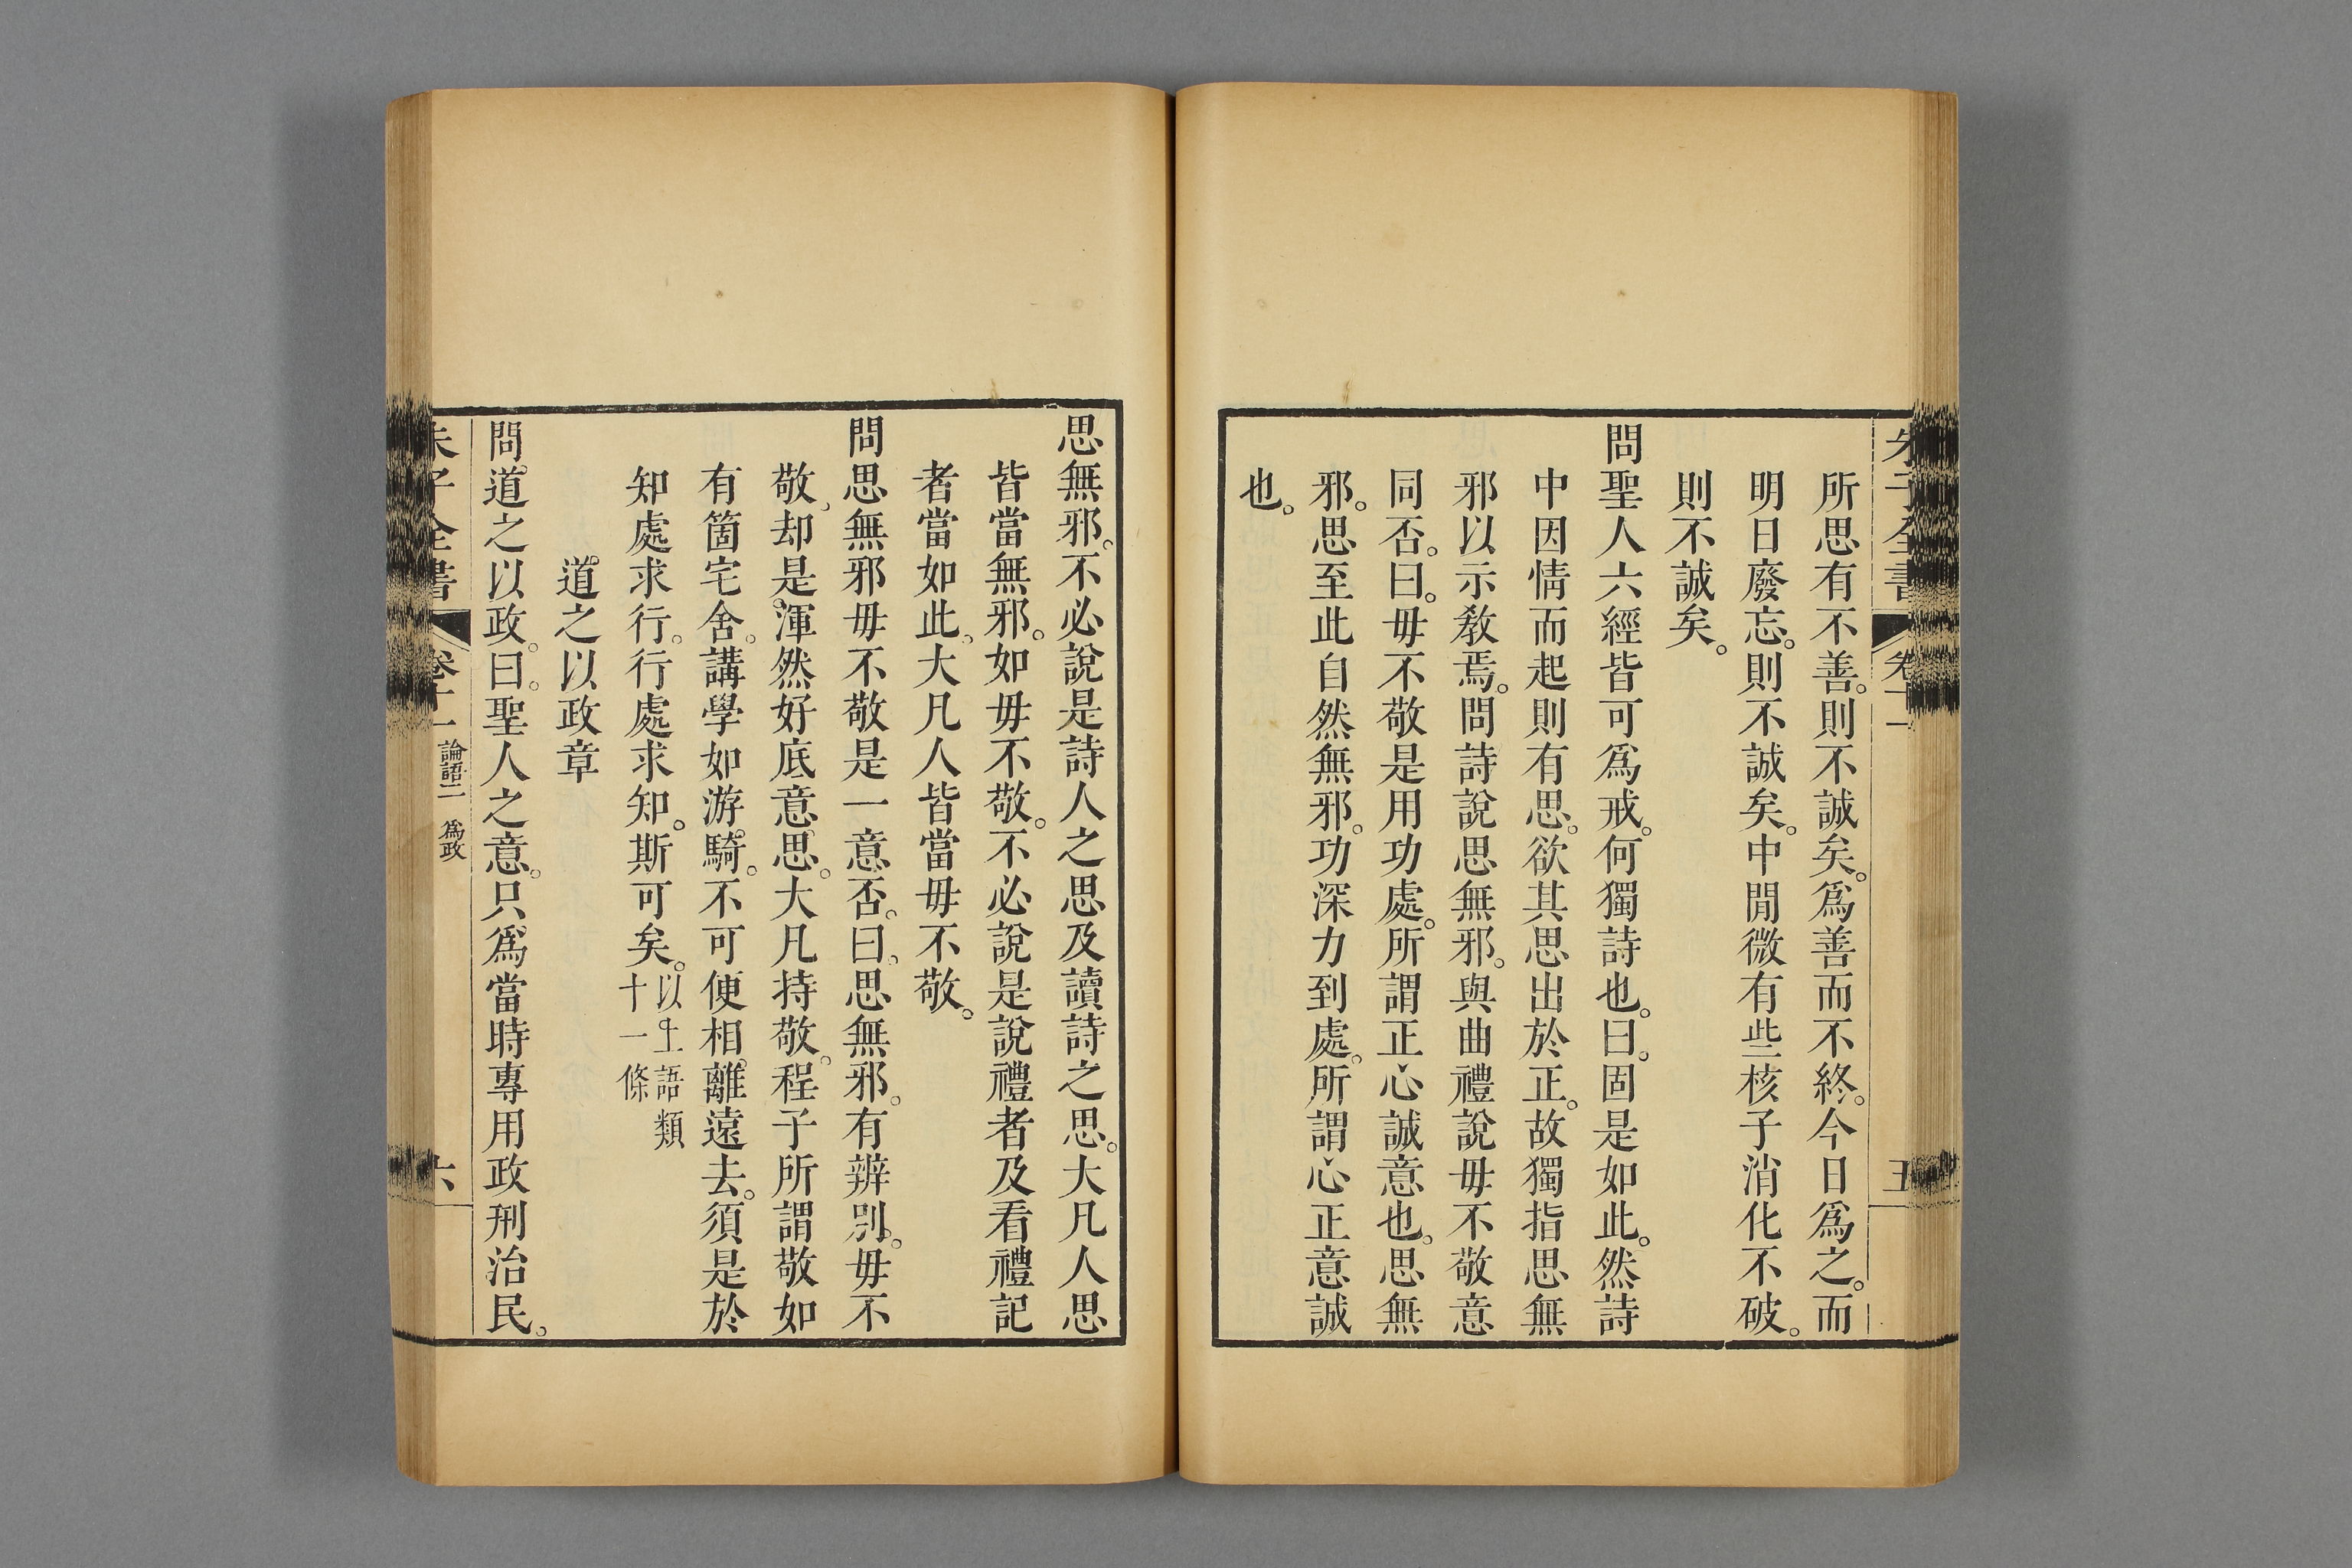 朱子全書 卷十一 五
所思有不善。則不誠矣。爲善而不終。今日爲之。而
明日廢忘。則不誠矣。中閒微有些核子消化不破。
則不誠矣。
問聖人六經皆可爲戒。何獨詩也。曰。固是如此。然詩
中因情而起則有思。欲其思出於正。故獨指思無
邪以示敎焉。問詩說思無邪。與曲禮說毋不敬意
同否。曰。毋不敬是用功處。所謂正心誠意也。思無
邪。思至此自然無邪。功深力到處。所謂心正意誠
也。
思無邪。不必說是詩人之思及讀詩之思。大凡人思
皆當無邪。如毋不敬。不必說是說禮者及看禮記
者當如此。大凡人皆當毋不敬。
問思無邪毋不敬是一意否。曰。思無邪。有辨別。毋不
敬、却是渾然好底意思。大凡持敬。程子所謂敬如
有箇宅舍。講學如游騎。不可便相離遠去。須是於
知處求行。行處求知。斯可矣。以上語類
十一條
道之以政章
問道之以政。曰。聖人之意。只爲當時專用政刑治民。
朱子全書 卷十一 論語二 爲政 六